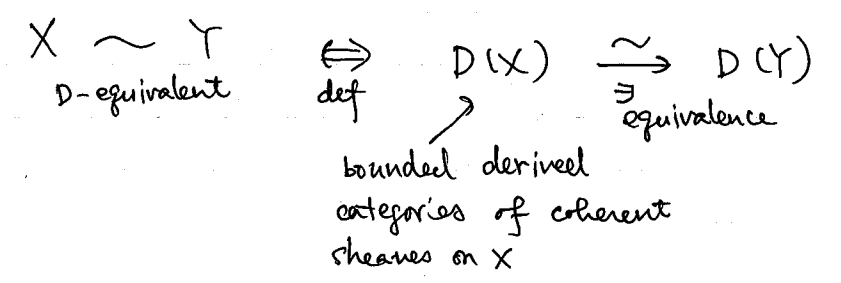 X ~ Y ⇔ D(X) ⥲ D(Y)
D-equivalent def ∃ equivalence
bounded derived
categories of coherent
sheaves on X